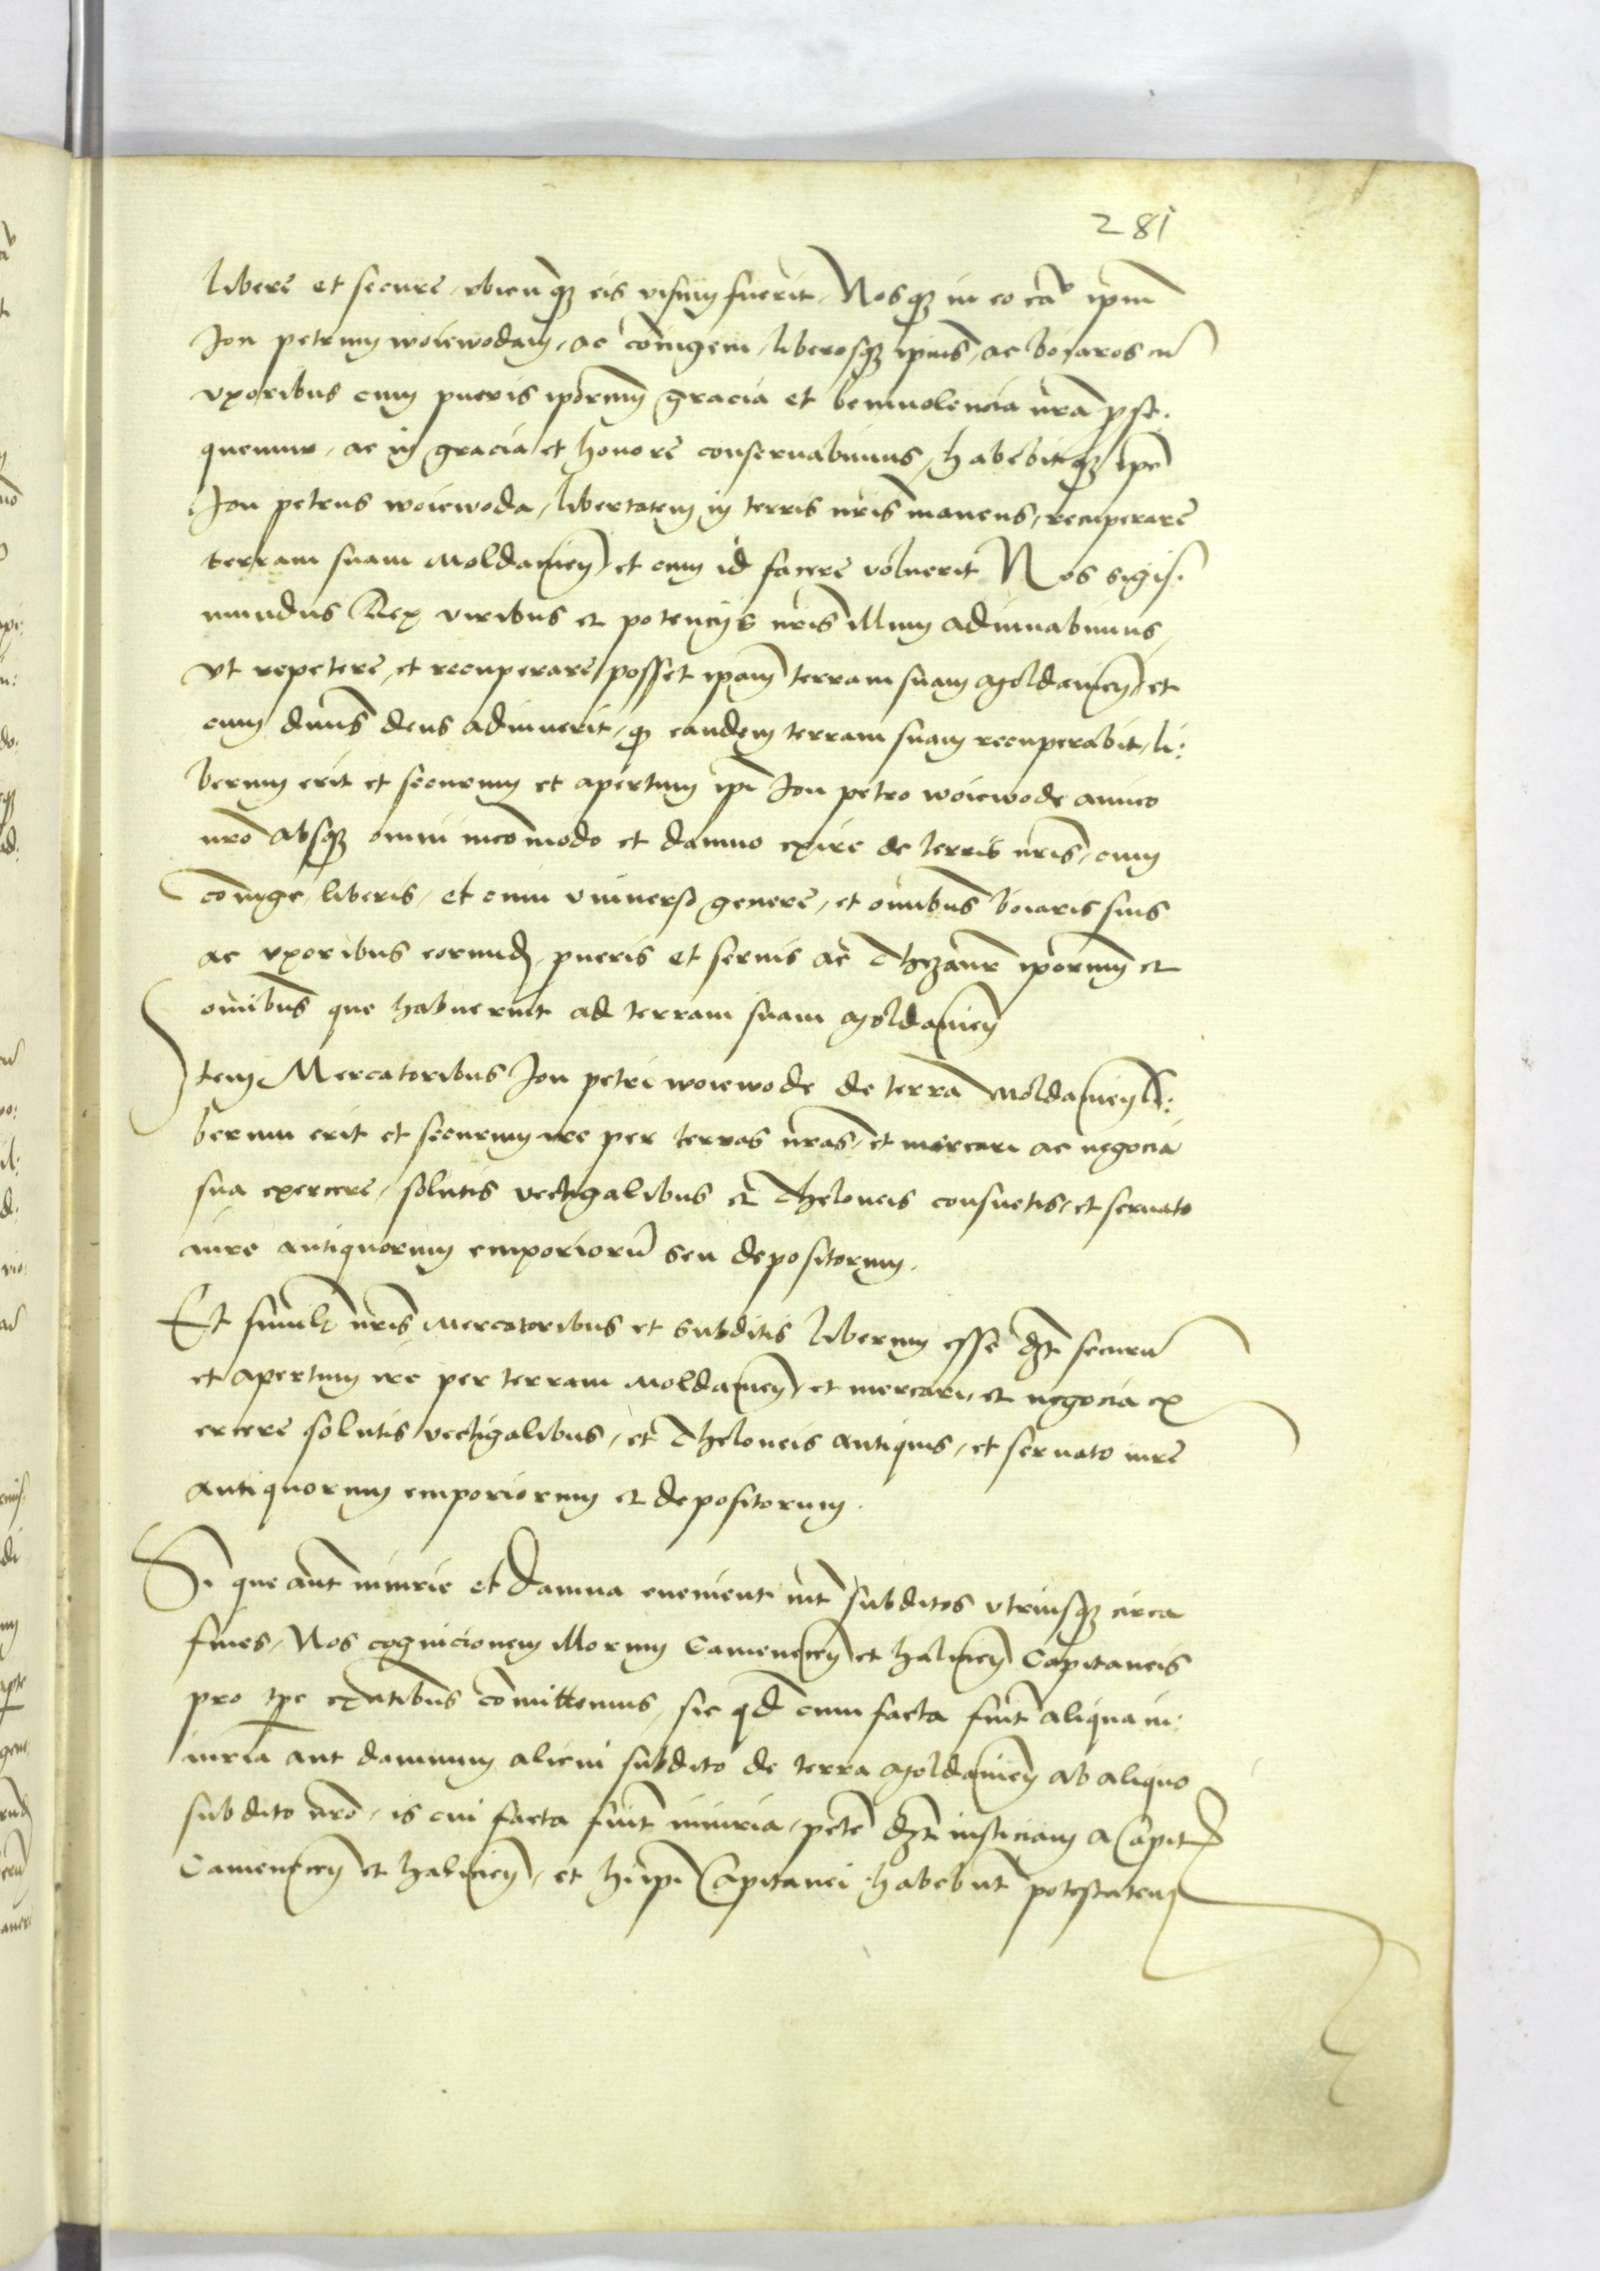 281
libere et secure, vbicunq3 eis visum fuerit, Nosq3 in eo ca ipm
Jon petrum woiewodam, ac coniugem, liberosq3 ipius, ac boiaros cu
vxoribus cum pueris iporum gracia et beniuolencia nra pse.
quemur, ac in gracia et honore conseruabimus, habebitq3 ipe
Jon petrus woiewoda, libertatem in terris nris manens, recuperare
terram suam Moldauien, et cum id facere voluerit Nos sigis.
mundus Rex viribus et potencijs nris illum adiuuabimus,
vt repetere, et recuperare posset ipam terram suam Moldauien, et
cum dnus deus adiuuerit, q eandem terram suam recuperabit, li:
berum erit et securum et apertum ipi Jon petro woiewode amico
nro absq3 omni incomodo et damno exire de terris nris, cum
coniuge, liberis, et cum vniuerso genere, et omibus boiaris suis
ac vxoribus eorund, pueris et seruis ac Thezaur iporum et
omibus que habuerint ad terram suam Moldauien
Item Mercatoribus Jon petri woiewode de terra Moldauien li:
berum erit et securum ire per terras nras, et mercari ac negocia
sua exercere, solutis vectigalibus et Theloneis consuetis, et seruato
iure antiquorum emporioru seu depositorum.
Et simili nris Mercatoribus et subditis liberum esse d3t securu
et apertum ire per terram Moldauien, et mercari, et negocia ex
ercere solutis vectigalibus, et Theloneis antiquis, et seruato iure
antiquorum emporiorum et depositorum.
Si que aut iniurie et damna euenient int subditos vtriusq3 circa
fines, Nos cognicionem illorum Camenecen et halicien Capitaneis
pro tpe exntibus comittemus, sic qd cum facta fuit aliqua in:
iuria aut damnum alicui subdito de terra Moldauien ab aliquo
subdito nro, is cui facta fuit iniuria, pete d3t iusticiam a Capit
Camenecen et halicien, et hi ipi Capitanei habebut potestatem